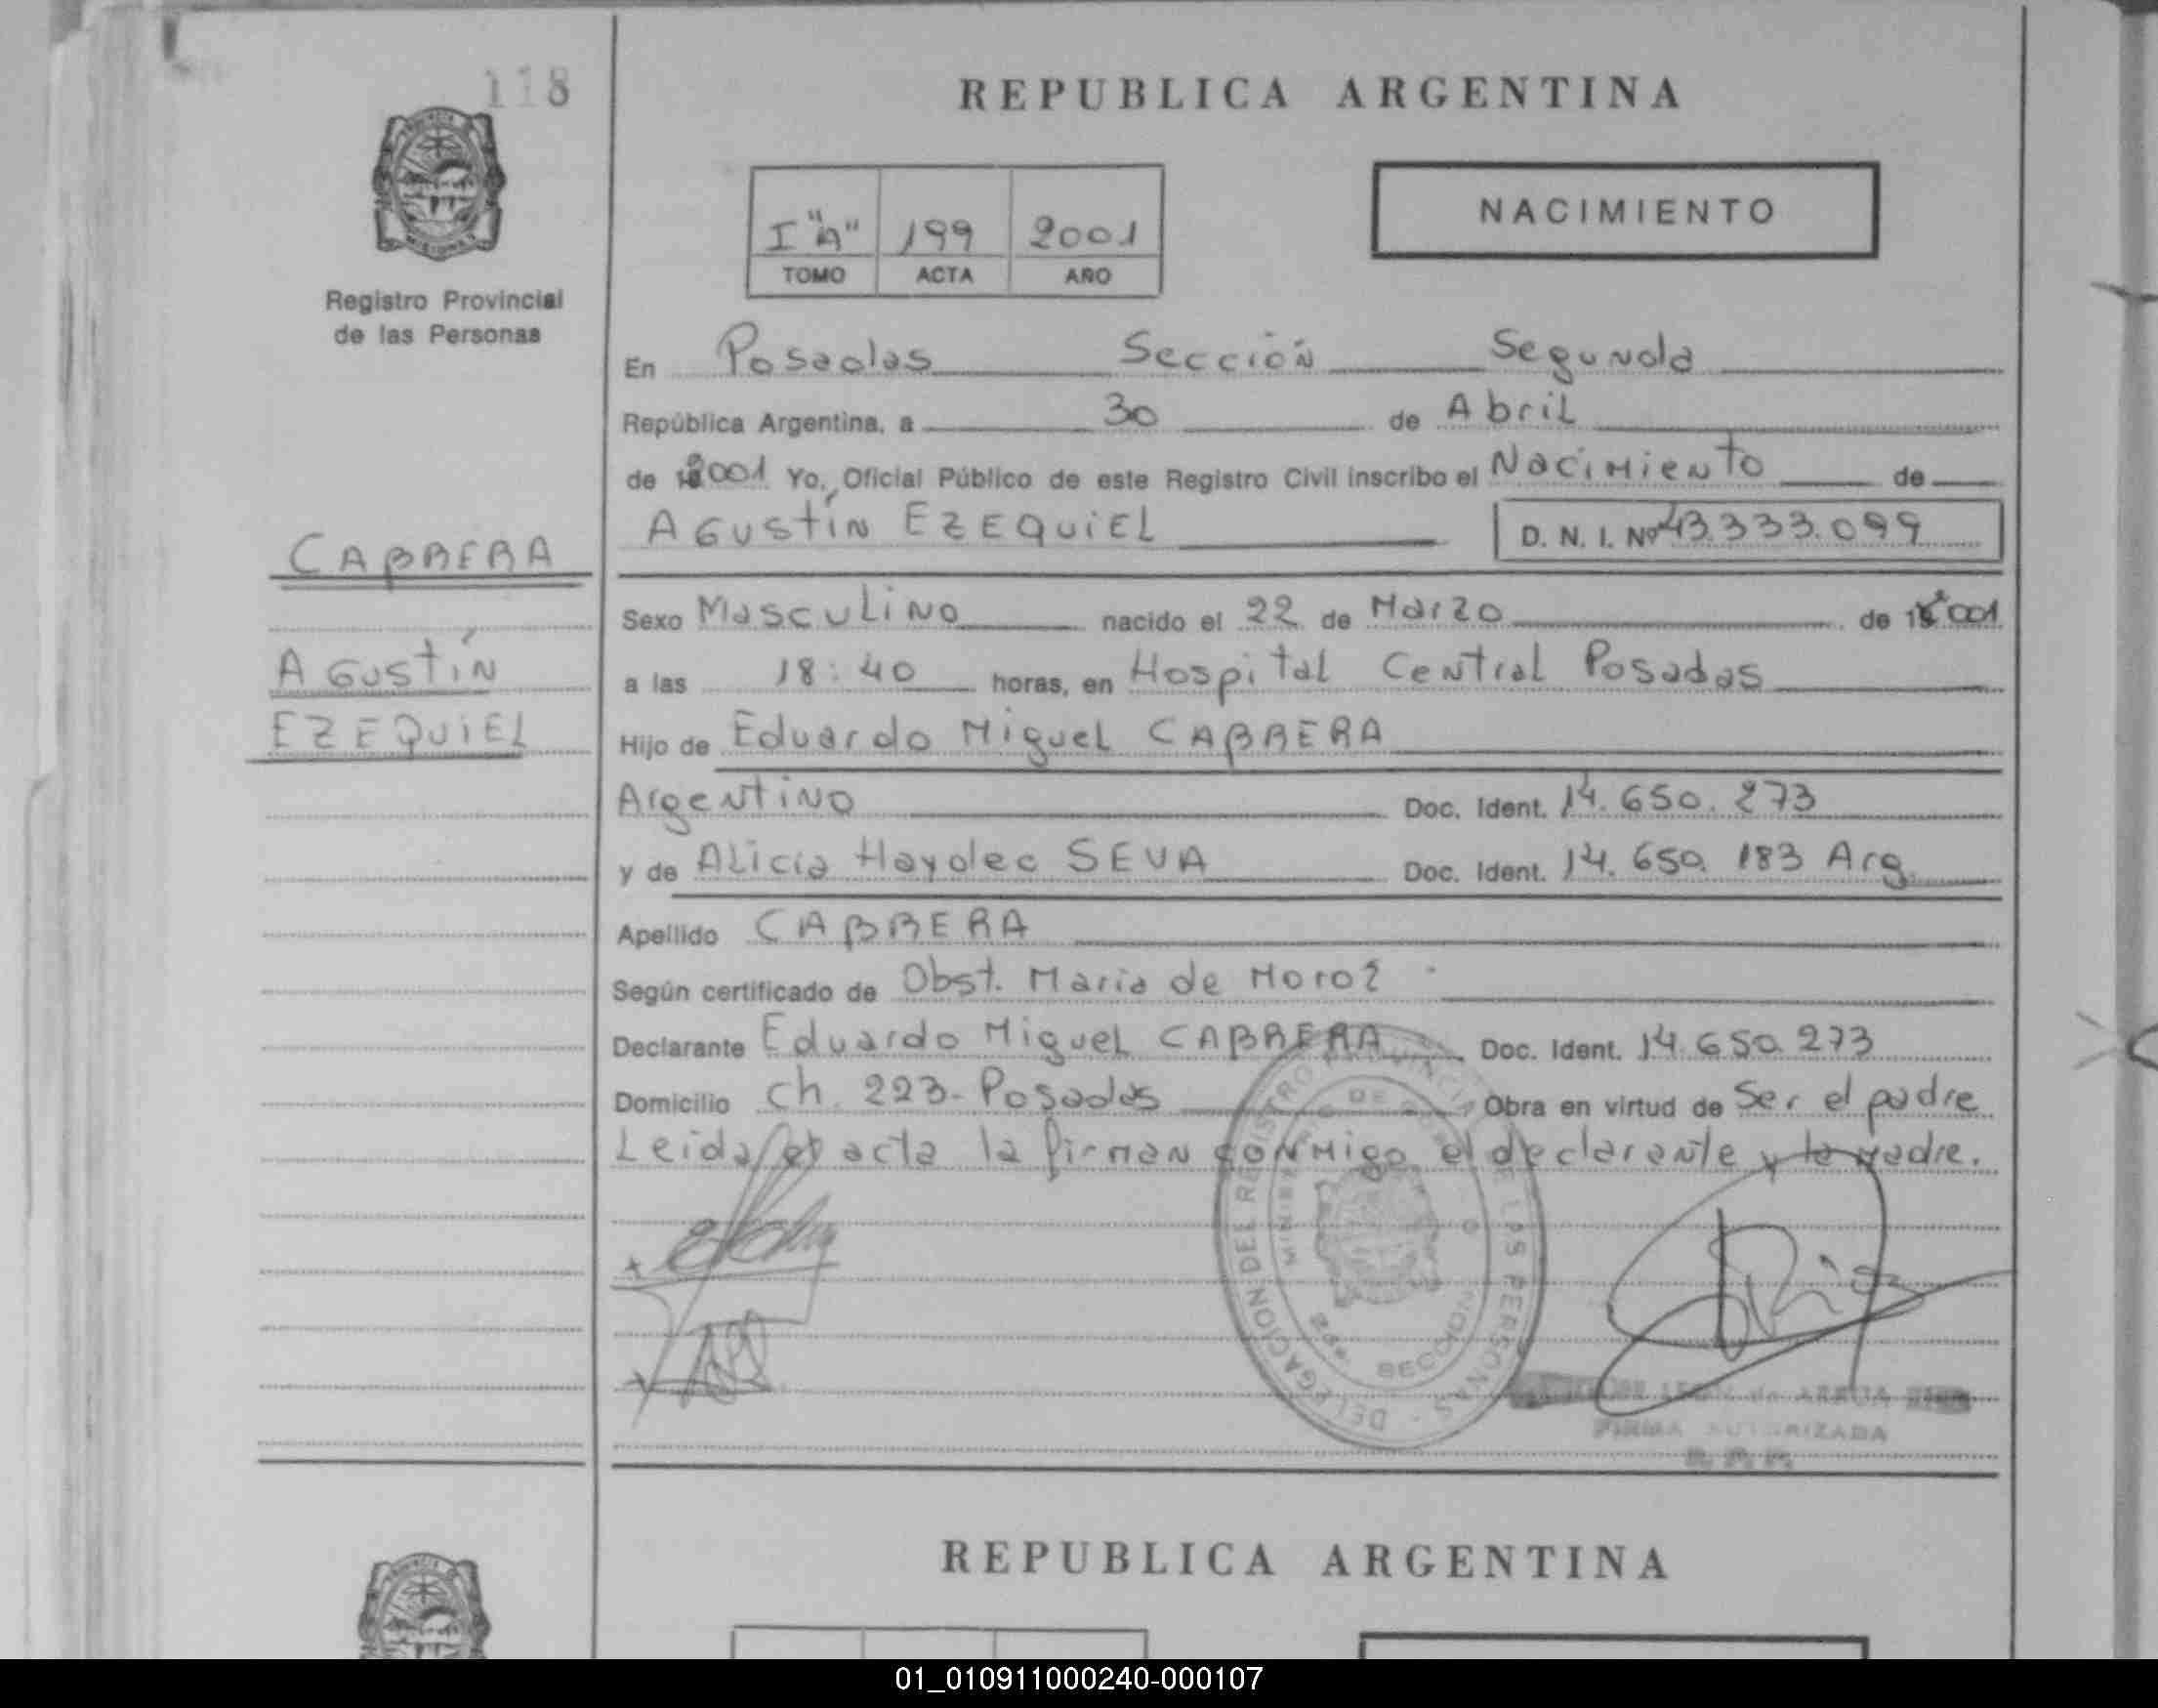 118
REPUBLICA ARGENTINA
I "A" 199 2001
TOMO ACTA AÑO
NACIMIENTO
Registro Provincial
de las Personas
En Posadas Sección Segunda
República Argentina, a 30 de Abril
de 2001 Yo, Oficial Público de este Registro Civil inscribo el Nacimiento de
AGUSTÍN EZEQUIEL D. N. I. Nº 43.333.099
CABRERA
Sexo Masculino nacido el 22 de Marzo de 2001
AGUSTÍN
a las 18:40 horas, en Hospital Central Posadas
EZEQUIEL
Hijo de Eduardo Miguel CABRERA
Argentino Doc. Ident. 14.650.273
y de Alicia Haydee SEVA Doc. Ident. 14.650.183 Arg.
Apellido CABRERA
Según certificado de Obst. Maria de Moroz
Declarante Eduardo Miguel CABRERA Doc. Ident. 14.650.273
Domicilio Ch. 223- Posadas Obra en virtud de Ser el padre
Leida el acta la firman conmigo el declarante y la madre.
DELEGACION DEL REGISTRO PROVINCIAL DE LAS PERSONAS
2da. SECCION
FIRMA AUTORIZADA
REPUBLICA ARGENTINA
01_010911000240-000107